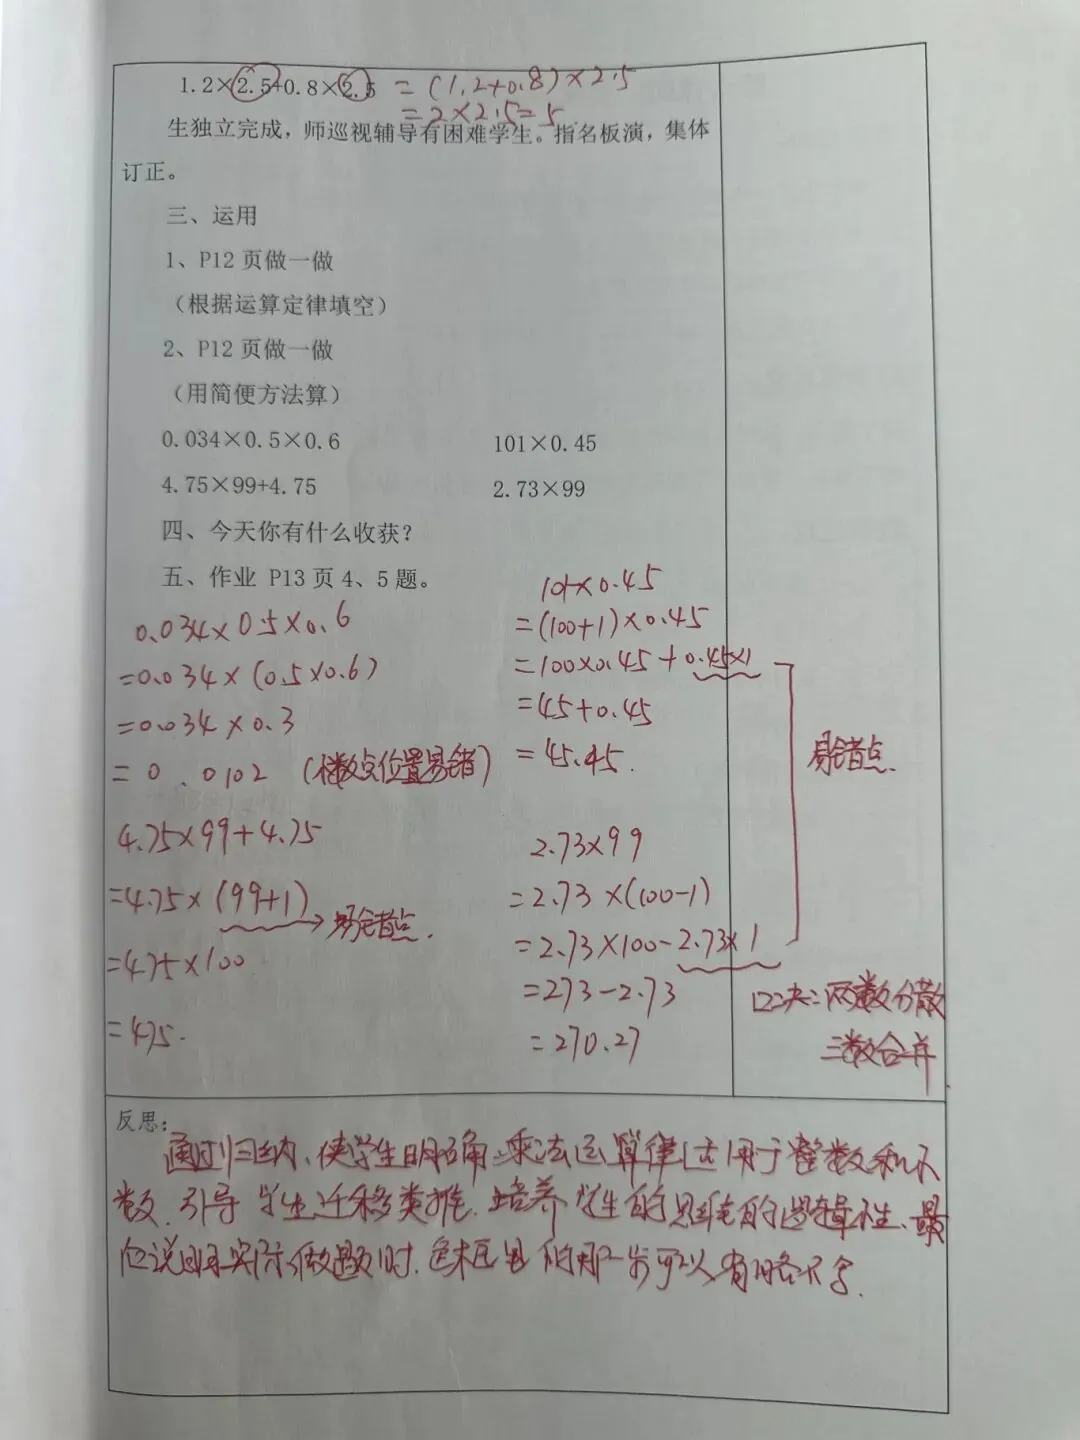 1.2×2.5+0.8×2.5 =(1.2+0.8)×2.5
=2×2.5=5.
生独立完成，师巡视辅导有困难学生。指名板演，集体
订正。
三、运用
1、P12 页做一做
（根据运算定律填空）
2、P12 页做一做
（用简便方法算）
0.034×0.5×0.6 101×0.45
4.75×99+4.75 2.73×99
四、今天你有什么收获？
五、作业 P13 页 4、5 题。
0.034×0.5×0.6
=0.034×(0.5×0.6)
=0.034×0.3
=0.0102 (小数点位置易错)
101×0.45
=(100+1)×0.45
=100×0.45+0.45×1
=45+0.45
=45.45.
易错点.
4.75×99+4.75
=4.75×(99+1)
易错点.
=4.75×100
=475.
2.73×99
=2.73×(100-1)
=2.73×100-2.73×1
=273-2.73
=270.27
口诀:两数分散
三数合并.
反思：
通过归纳、使学生明确乘法运算律适用于整数和小
数.引导学生迁移类推.培养学生的思维的逻辑性、最
后说明实际做题时.
的那一步可以省略不写.